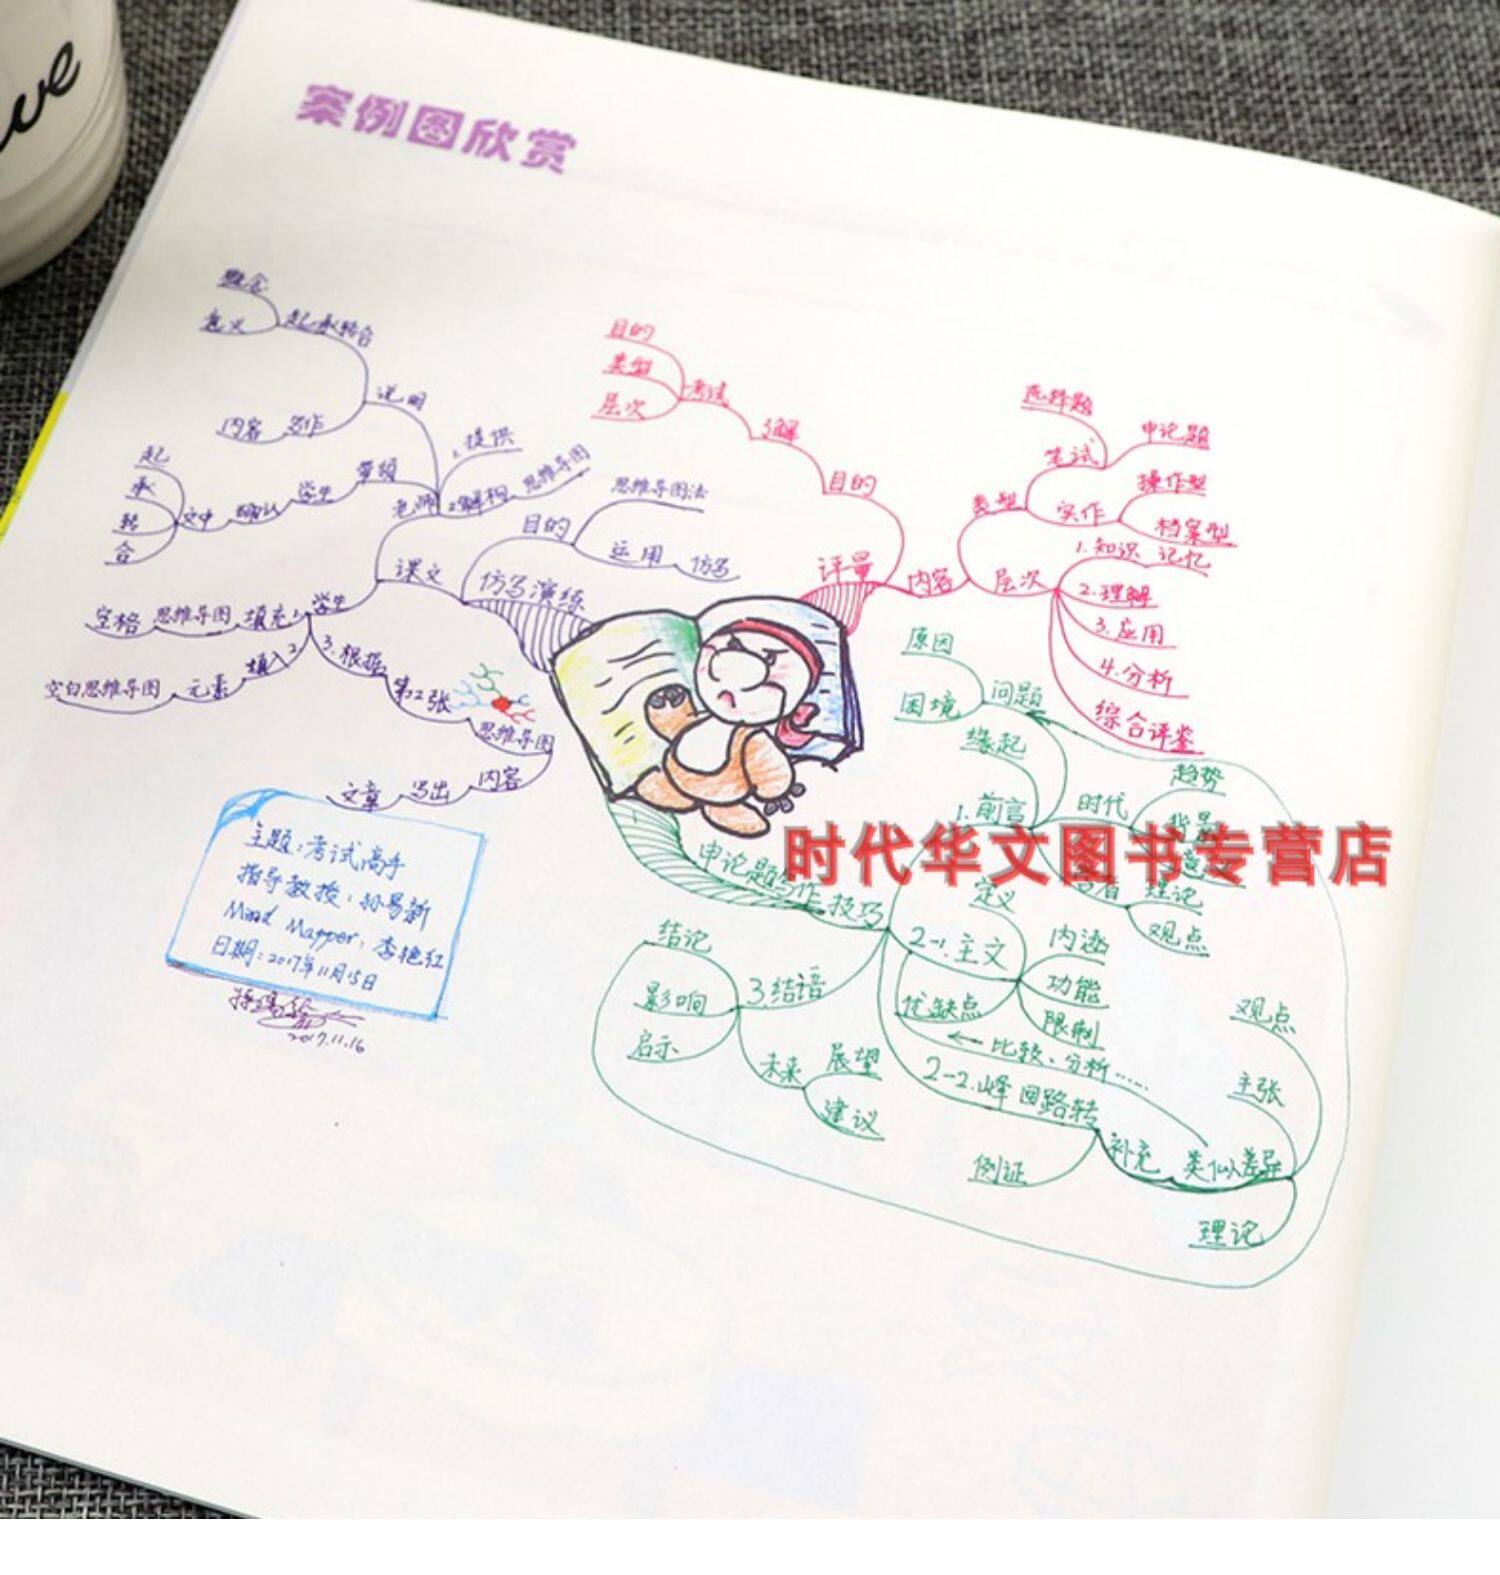 案例图欣赏
概念
意义
起承转合
说明
内容 写作
1.提供
起
承
转
合
文中 确认 学生 带领
老师 2.解构 思维导图
课文
仿写演练
目的
思维导图法
运用 仿写
空格 思维导图 填充1. 学生
空白思维导图 元素 填入2.
3.根据
第2张
思维导图
文章 写出 内容
目的
类型
层次
考试
了解
目的
评量
内容
选择题
笔试 申论题
类型 实作 操作型
档案型
层次
1.知识 记忆
2.理解
3.应用
4.分析
综合评鉴
原因
困境
问题
缘起
1.前言
时代
趋势
背景
理论
观点
申论题写作技巧
定义
2-1.主文
内涵
功能
限制
优缺点
←比较、分析……
2-2.峰回路转
例证
补充 类似差异
观点
主张
理论
3.结语
结论
影响
启示
未来 展望
建议
主题:考试高手
指导教授:孙易新
Mind Mapper:李艳红
日期:2017年11月15日
2017.11.16
时代华文图书专营店